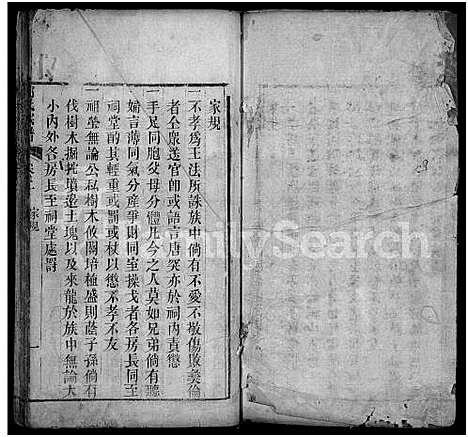 家規
一不孝爲王法所誅族中倘有不愛不敬傷敗彝倫
者全衆送官即或語言唐突亦於祠內責懲
一手足同胞父母分體凡今之人莫如兄弟倘有聽
婦言薄同氣分產爭財同室操戈者各房長同至
祠堂酌其輕重或罰或杖以懲不孝不友
一祖塋無論公私樹木攸關培植盛則蔭子孫倘有
伐樹木掘挖墳塋土塊以及來龍於族中無論大
小內外各房長至祠堂處罰
家規
FamilySearch